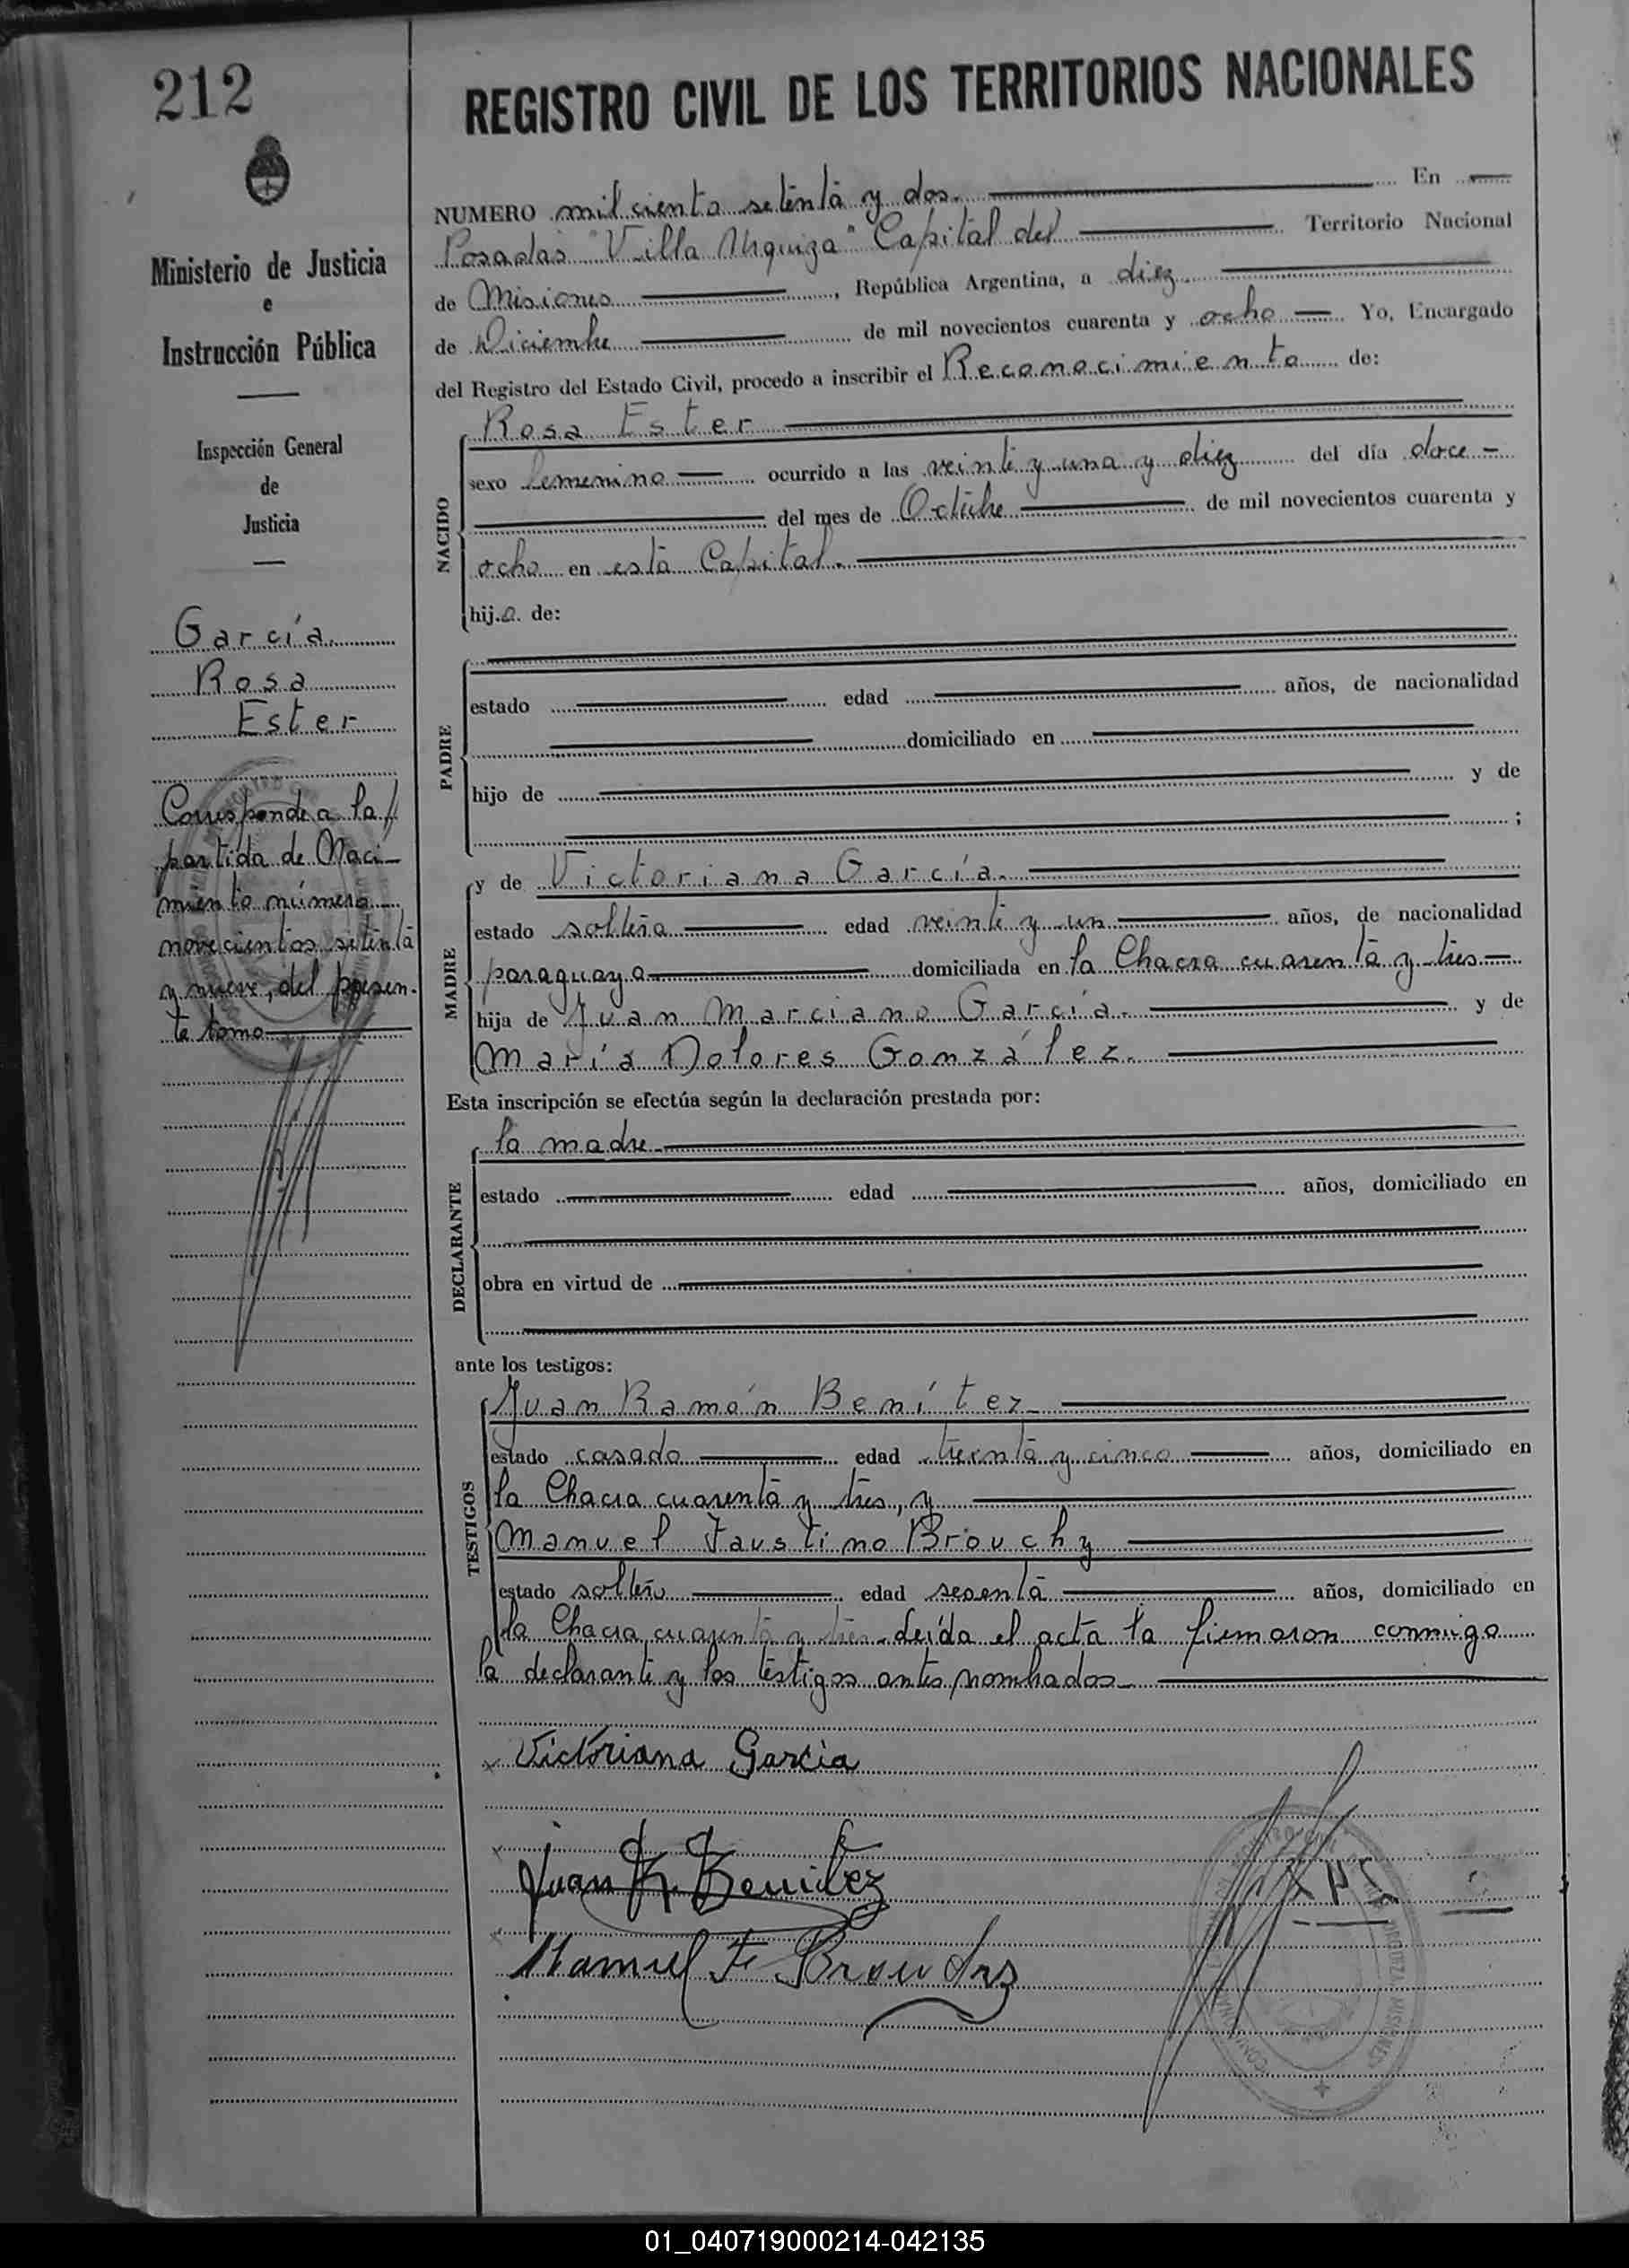 212
REGISTRO CIVIL DE LOS TERRITORIOS NACIONALES
Ministerio de Justicia
e
Instrucción Pública
Inspección General
de
Justicia
García
Rosa
Ester
Corresponde a la
partida de Naci-
miento número
novecientos setenta
y nueve, del presen-
te tomo
NUMERO mil ciento setenta y dos. En
Posadas "Villa Urquiza" Capital del Territorio Nacional
de Misiones, República Argentina, a diez
de Diciembre de mil novecientos cuarenta y ocho Yo, Encargado
del Registro del Estado Civil, procedo a inscribir el Reconocimiento de:
NACIDO
Rosa Ester
sexo femenino ocurrido a las veinte y una y diez del día doce
del mes de Octubre de mil novecientos cuarenta y
ocho en esta Capital.
hija de:
PADRE
estado edad años, de nacionalidad
domiciliado en
hijo de y de
;
MADRE
y de Victoriana García.
estado soltera edad veinte y un años, de nacionalidad
paraguaya domiciliada en la Chacra cuarenta y tres
hija de Juan Marciano García. y de
María Dolores González.
Esta inscripción se efectúa según la declaración prestada por:
DECLARANTE
la madre
estado edad años, domiciliado en
obra en virtud de
ante los testigos:
TESTIGOS
Juan Ramón Benítez
estado casado edad treinta y cinco años, domiciliado en
la Chacra cuarenta y tres, y
Manuel Faustino Brouchy
estado soltero edad sesenta años, domiciliado en
la Chacra cuarenta y tres. Leída el acta la firmaron conmigo
la declarante y los testigos antes nombrados
x Victoriana García
Juan R. Benitez
Manuel F. Brouchy
01_040719000214-042135